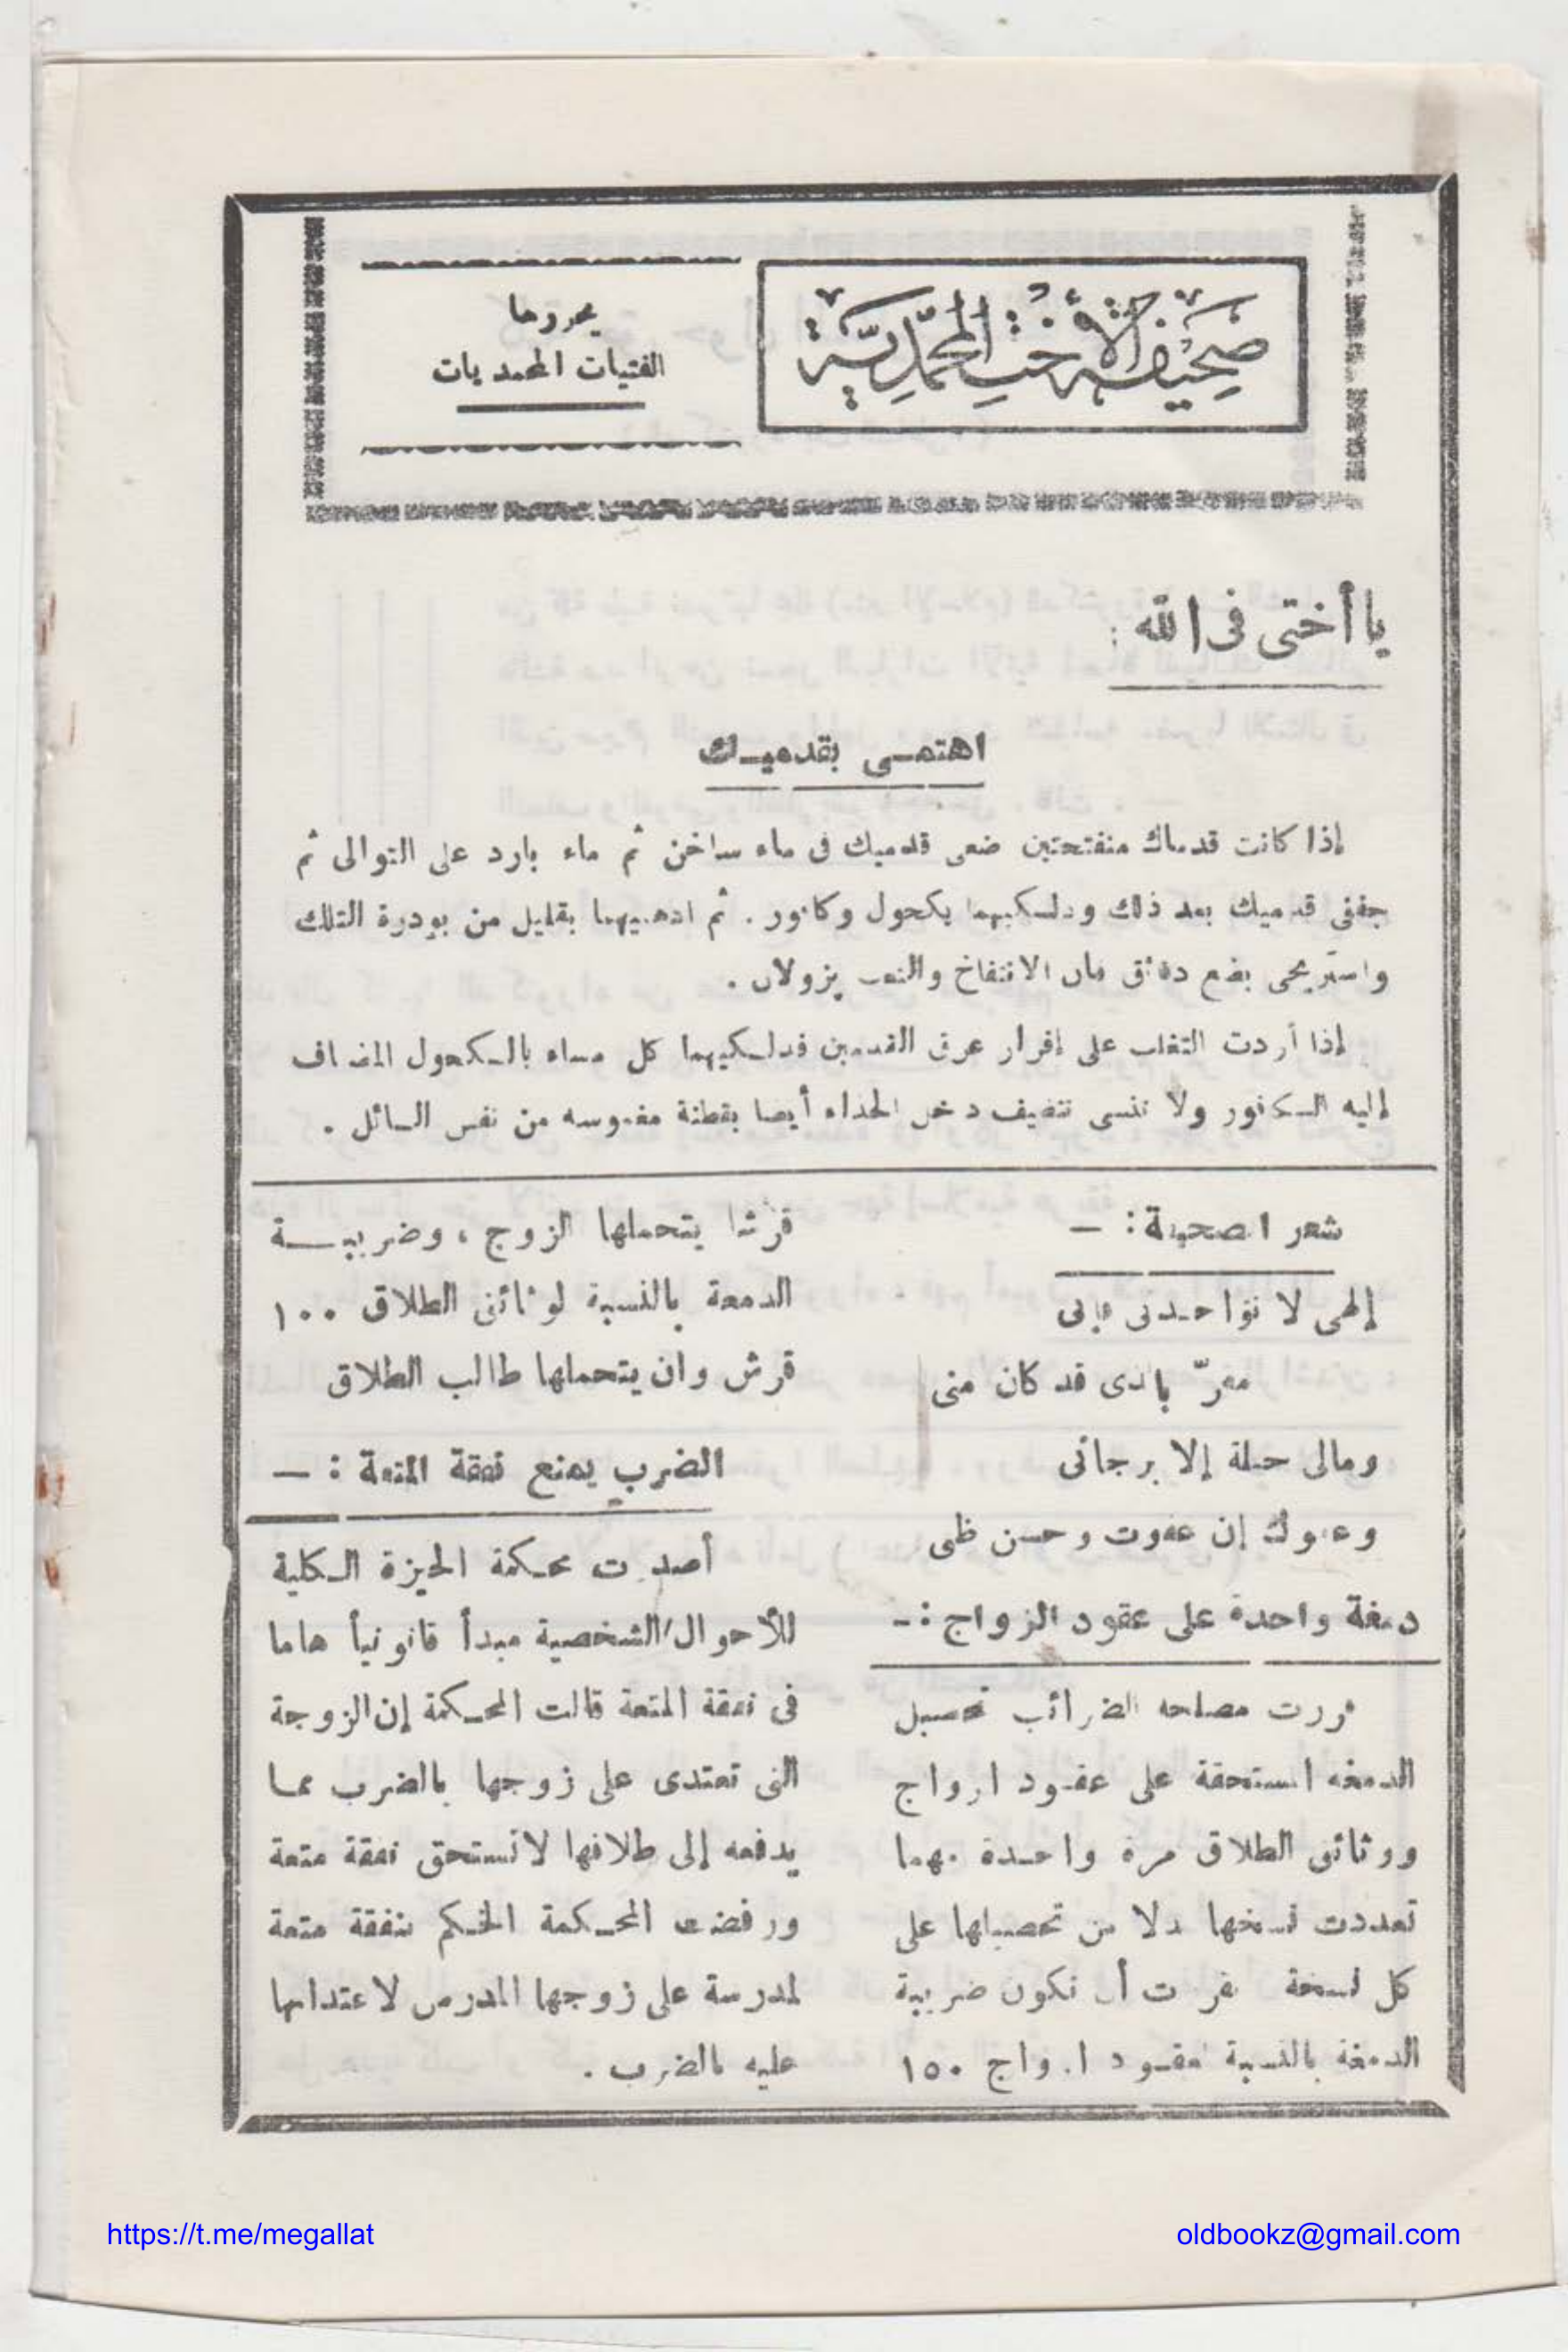 صحيفة الأخت المحمدية
يحررها
الفتيات المحمديات
يا أختى فى الله :
اهتمى بقدميك
إذا كانت قدماك منفتحتين ضعى قدميك فى ماء ساخن ثم ماء بارد على التوالى ثم
جففى قدميك بعد ذلك ودلكيهما بكحول وكافور . ثم ادهنيهما بقليل من بودرة التلك
واستريحى بضع دقائق فان الانتفاخ والتعب يزولان .
إذا أردت التغلب على إفراز عرق القدمين فدلكيهما كل مساء بالكحول المضاف
إليه الكافور ولا تنسى تنظيف داخل الحذاء أيضا بقطنة مغموسه من نفس السائل .
شعر الصحيفة : —
إلهى لا تؤاخذنى فإنى
مقرّ بالذى قد كان منى
ومالى حيلة إلا برجائى
وعفوك إن عفوت وحسن ظنى
دمغة واحدة على عقود الزواج :-
قررت مصلحه الضرائب تحصيل
الدمغه المستحقة على عقود الزواج
ووثائق الطلاق مرة واحدة مهما
تعددت نسخها بدلا من تحصيلها على
كل نسخة تقررت أن تكون ضريبة
الدمغة بالنسبة لعقود الزواج ١٥٠
قرشا يتحملها الزوج ، وضريبة
الدمغة بالنسبة لوثائق الطلاق ١٠٠
قرش وان يتحملها طالب الطلاق
الضرب يمنع نفقة المتعة : —
أصدرت محكمة الجيزة الكلية
للأحوال الشخصية مبدأ قانونيأ هاما
فى نفقة المتعة قالت المحكمة إن الزوجة
التى تعتدى على زوجها بالضرب مما
يدفعه إلى طلاقها لاتستحق نفقة متعة
ورفضت المحكمة الحكم بنفقة متعة
لمدرسة على زوجها المدرس لاعتدائها
عليه بالضرب .
https://t.me/megallat
oldbookz@gmail.com